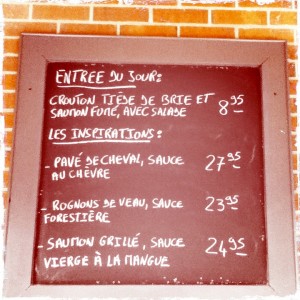 ENTREE DU JOUR:
CROUTON TIÈDE DE BRIE ET
SAUMON FUMÉ, AVEC SALADE 8 95
LES INSPIRATIONS:
- PAVÉ DE CHEVAL, SAUCE 27 95
AU CHÈVRE
- ROGNONS DE VEAU, SAUCE 23 95
FORESTIÈRE
- SAUMON GRILLÉ, SAUCE 24 95
VIERGE À LA MANGUE